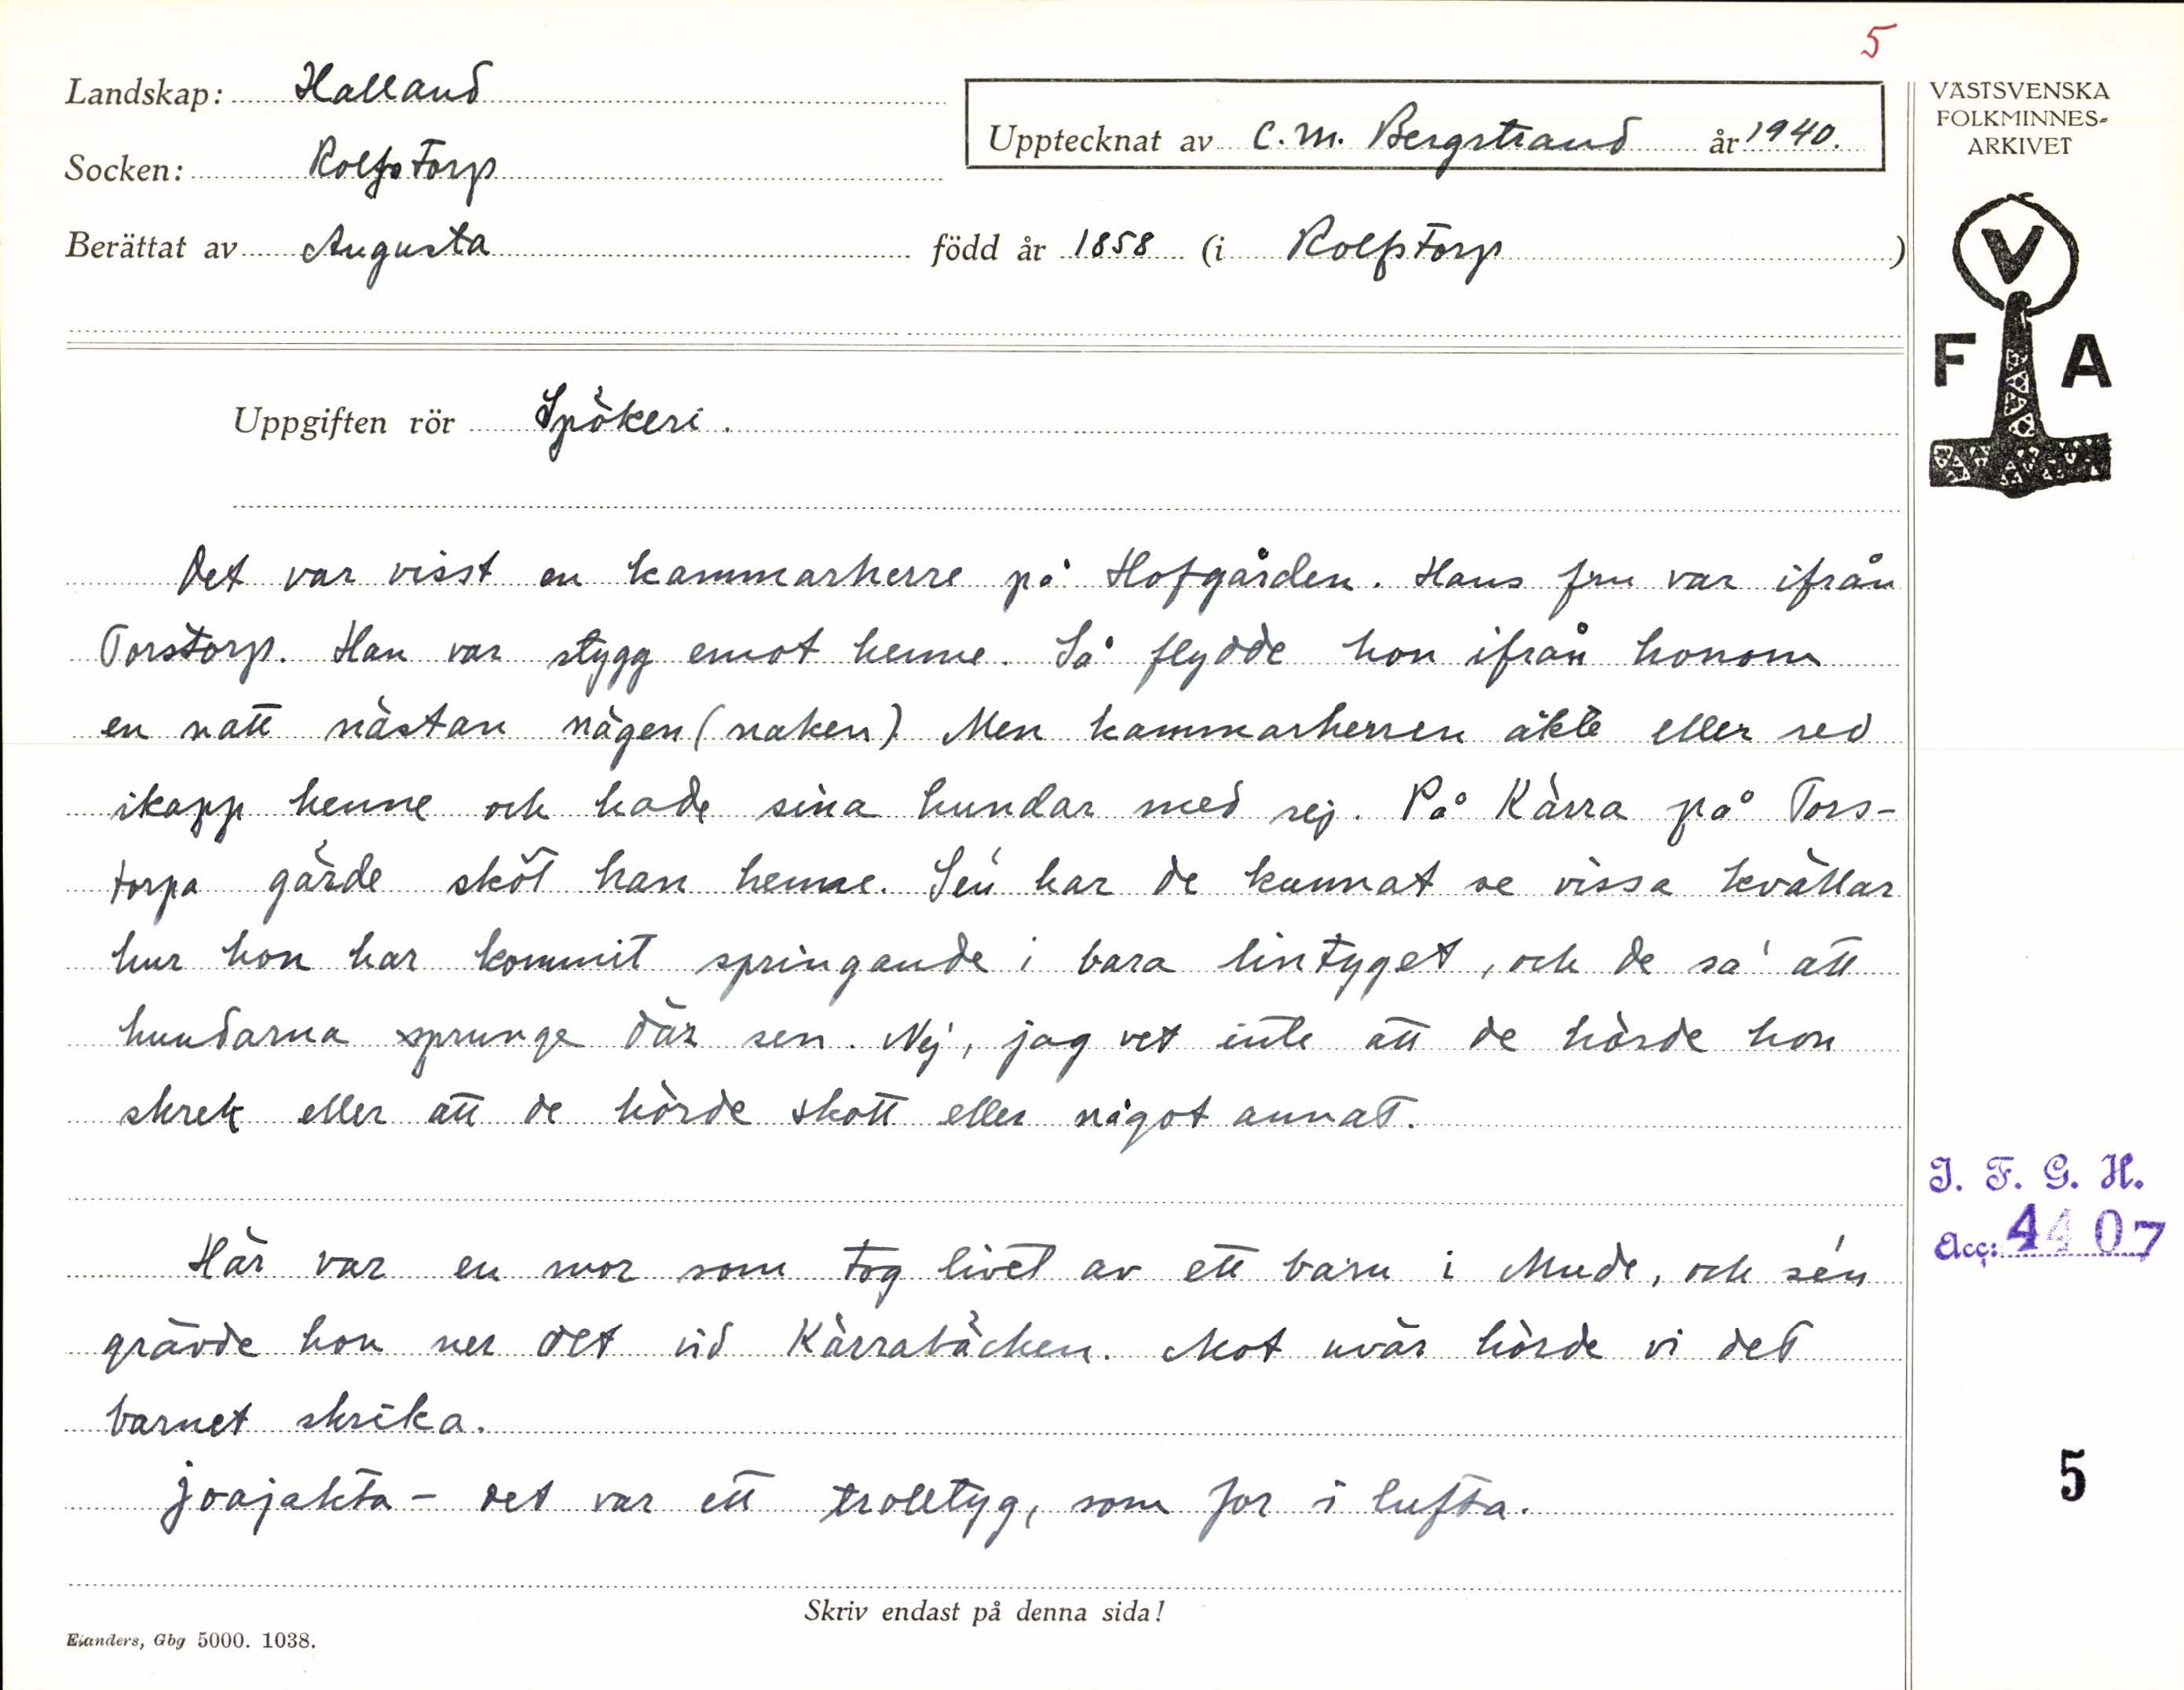 5
Landskap: Halland
Upptecknat av C. M. Bergstrand år 1940.
Socken: Rolfstorp
Berättat av Augusta född år 1858 (i Rolfstorp)
Uppgiften rör Spökeri.
Det var visst en kammarherre på Hofgården. Hans fru var ifrån
Torstorp. Han var stygg emot henne. Så flydde hon ifrån honom
en natt nästan nägen (naken) Men kammarherren åkte eller red
ikapp henne och hade sina hundar med sej. På Kärra på Tors-
torpa gärde sköt han henne. Sén har de kunnat se vissa kvällar
hur hon har kommit springande i bara lintyget, och de sa' att
hundarna sprunge där sen. Nej, jag vet inte att de hörde hon
skrek eller att de hörde skott eller något annat.
Här var en mor som tog livet av ett barn i Mude, och sén
grävde hon ner det vid Kärrabäcken. Mot uvär hörde vi det
barnet skrika.
joajakta - det var ett trolltyg, som for i lufta.
Skriv endast på denna sida!
Elanders, Gbg 5000. 1038.
VÄSTSVENSKA
FOLKMINNES-
ARKIVET
V
F A
I. F. G. H.
Acc: 4407
5